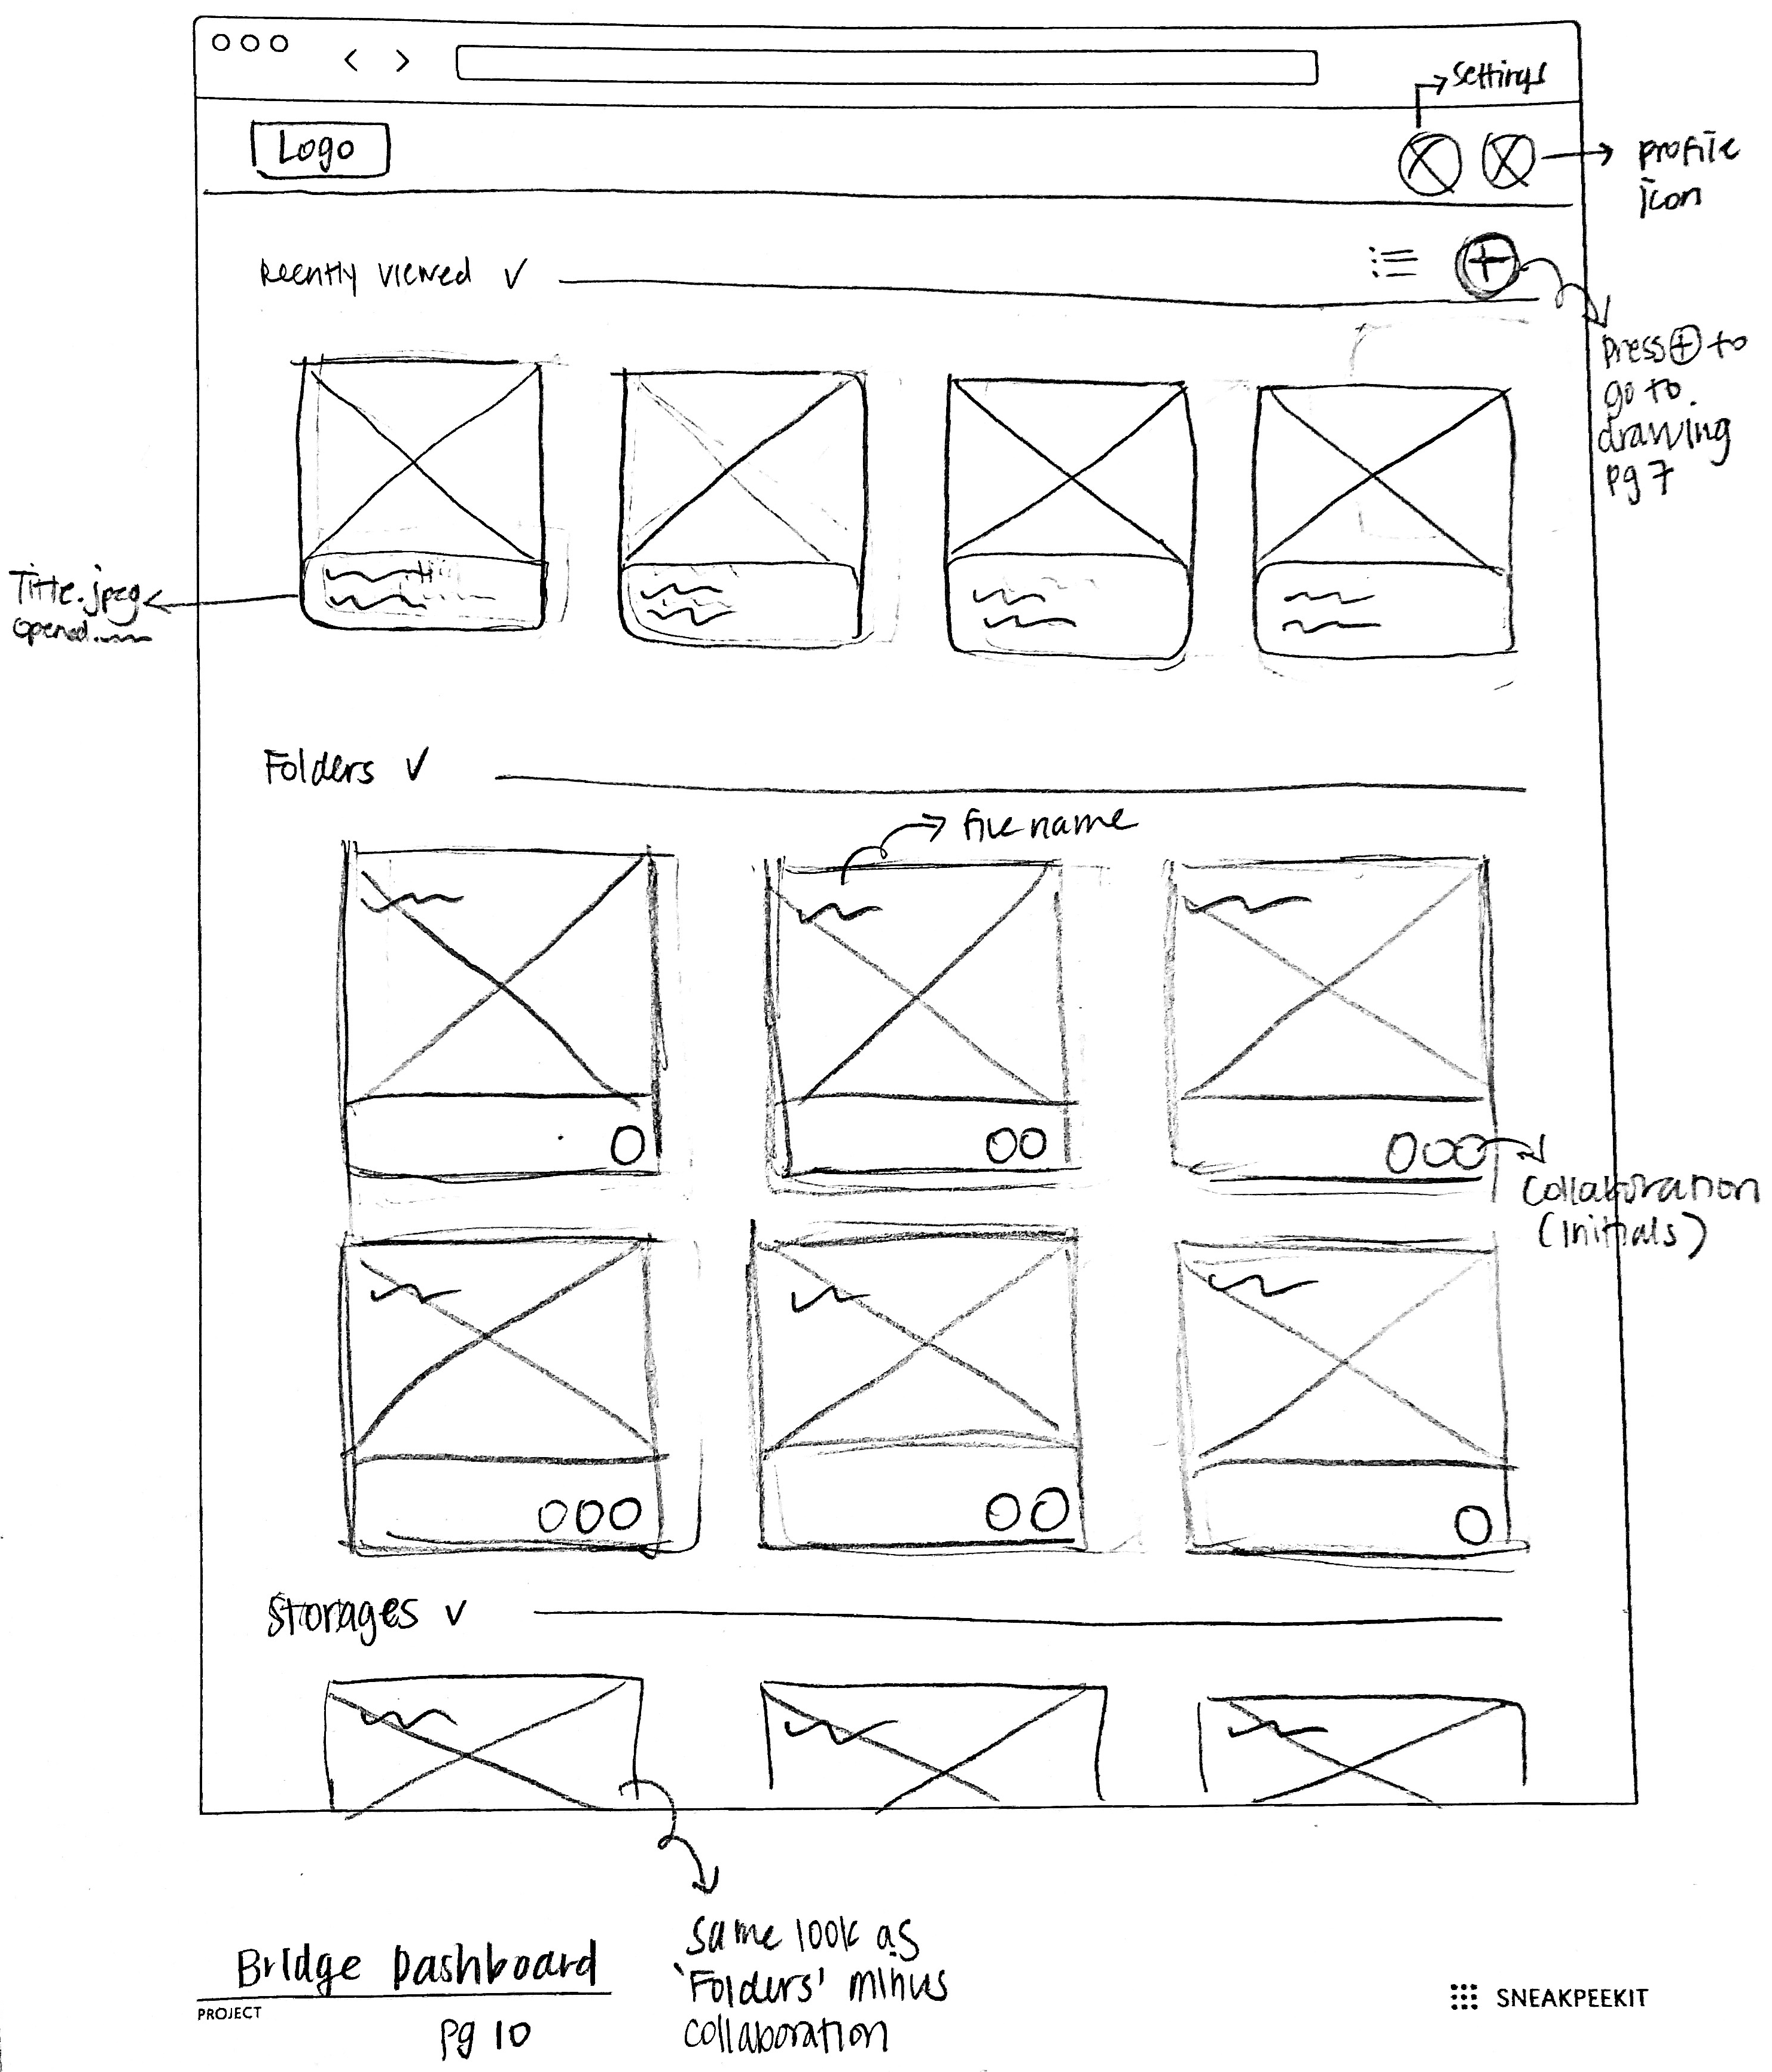 Settings
Logo
profile
icon
Recently viewed
Press + to
go to.
drawing
pg 7
Title.jpeg
opened
Folders
file name
Collaboration
(Initials)
Storages
Same look as
'Folders' minus
collaboration
Bridge Dashboard
PROJECT
pg 10
SNEAKPEEKIT